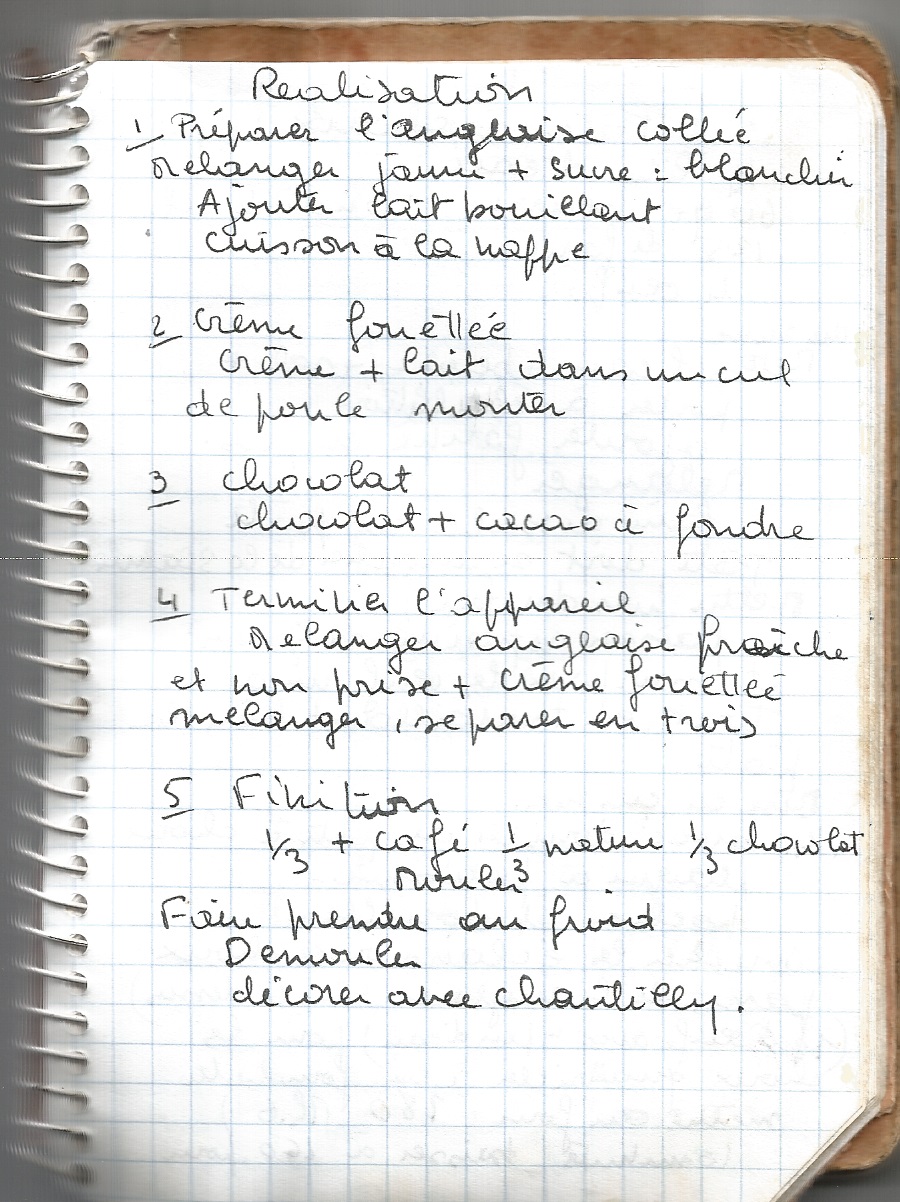 Realisation
1 Préparer l'anglaise collée
Melanger jaune + sucre : blanchir
Ajouter lait bouillant
cuisson à la nappe
2 Crème fouettée
Crème + lait dans un cul
de poule monter
3 chocolat
chocolat + cacao à fondre
4 Terminer l'appareil
Melanger anglaise fraîche
et non prise + Crème fouettée
mélanger, separer en trois
5 Finition
1/3 + café 1/3 nature 1/3 chocolat
Mouler
Faire prendre au froid
Demouler
décorer avec chantilly.